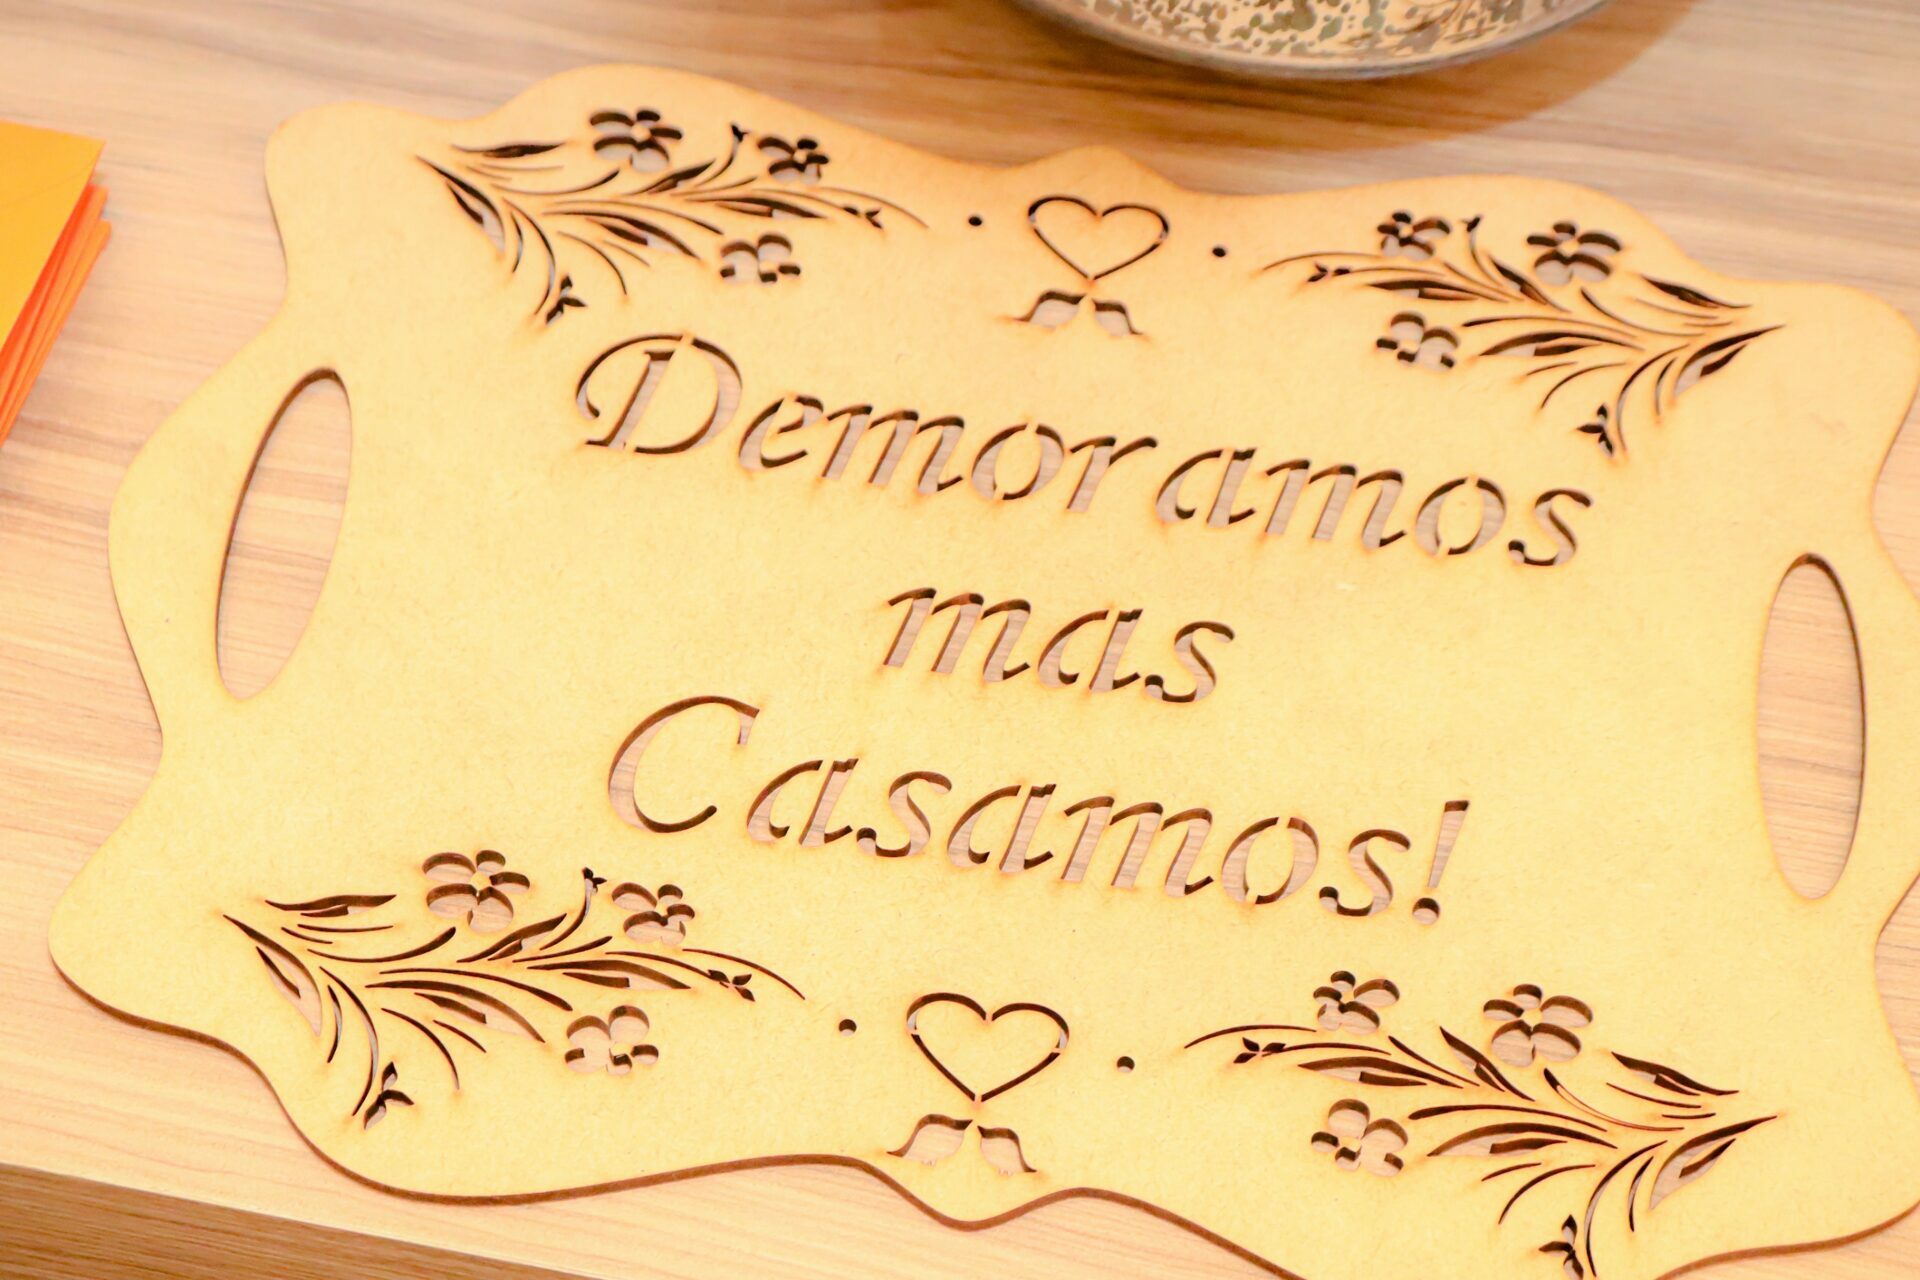 Demoramos
mas
Casamos!